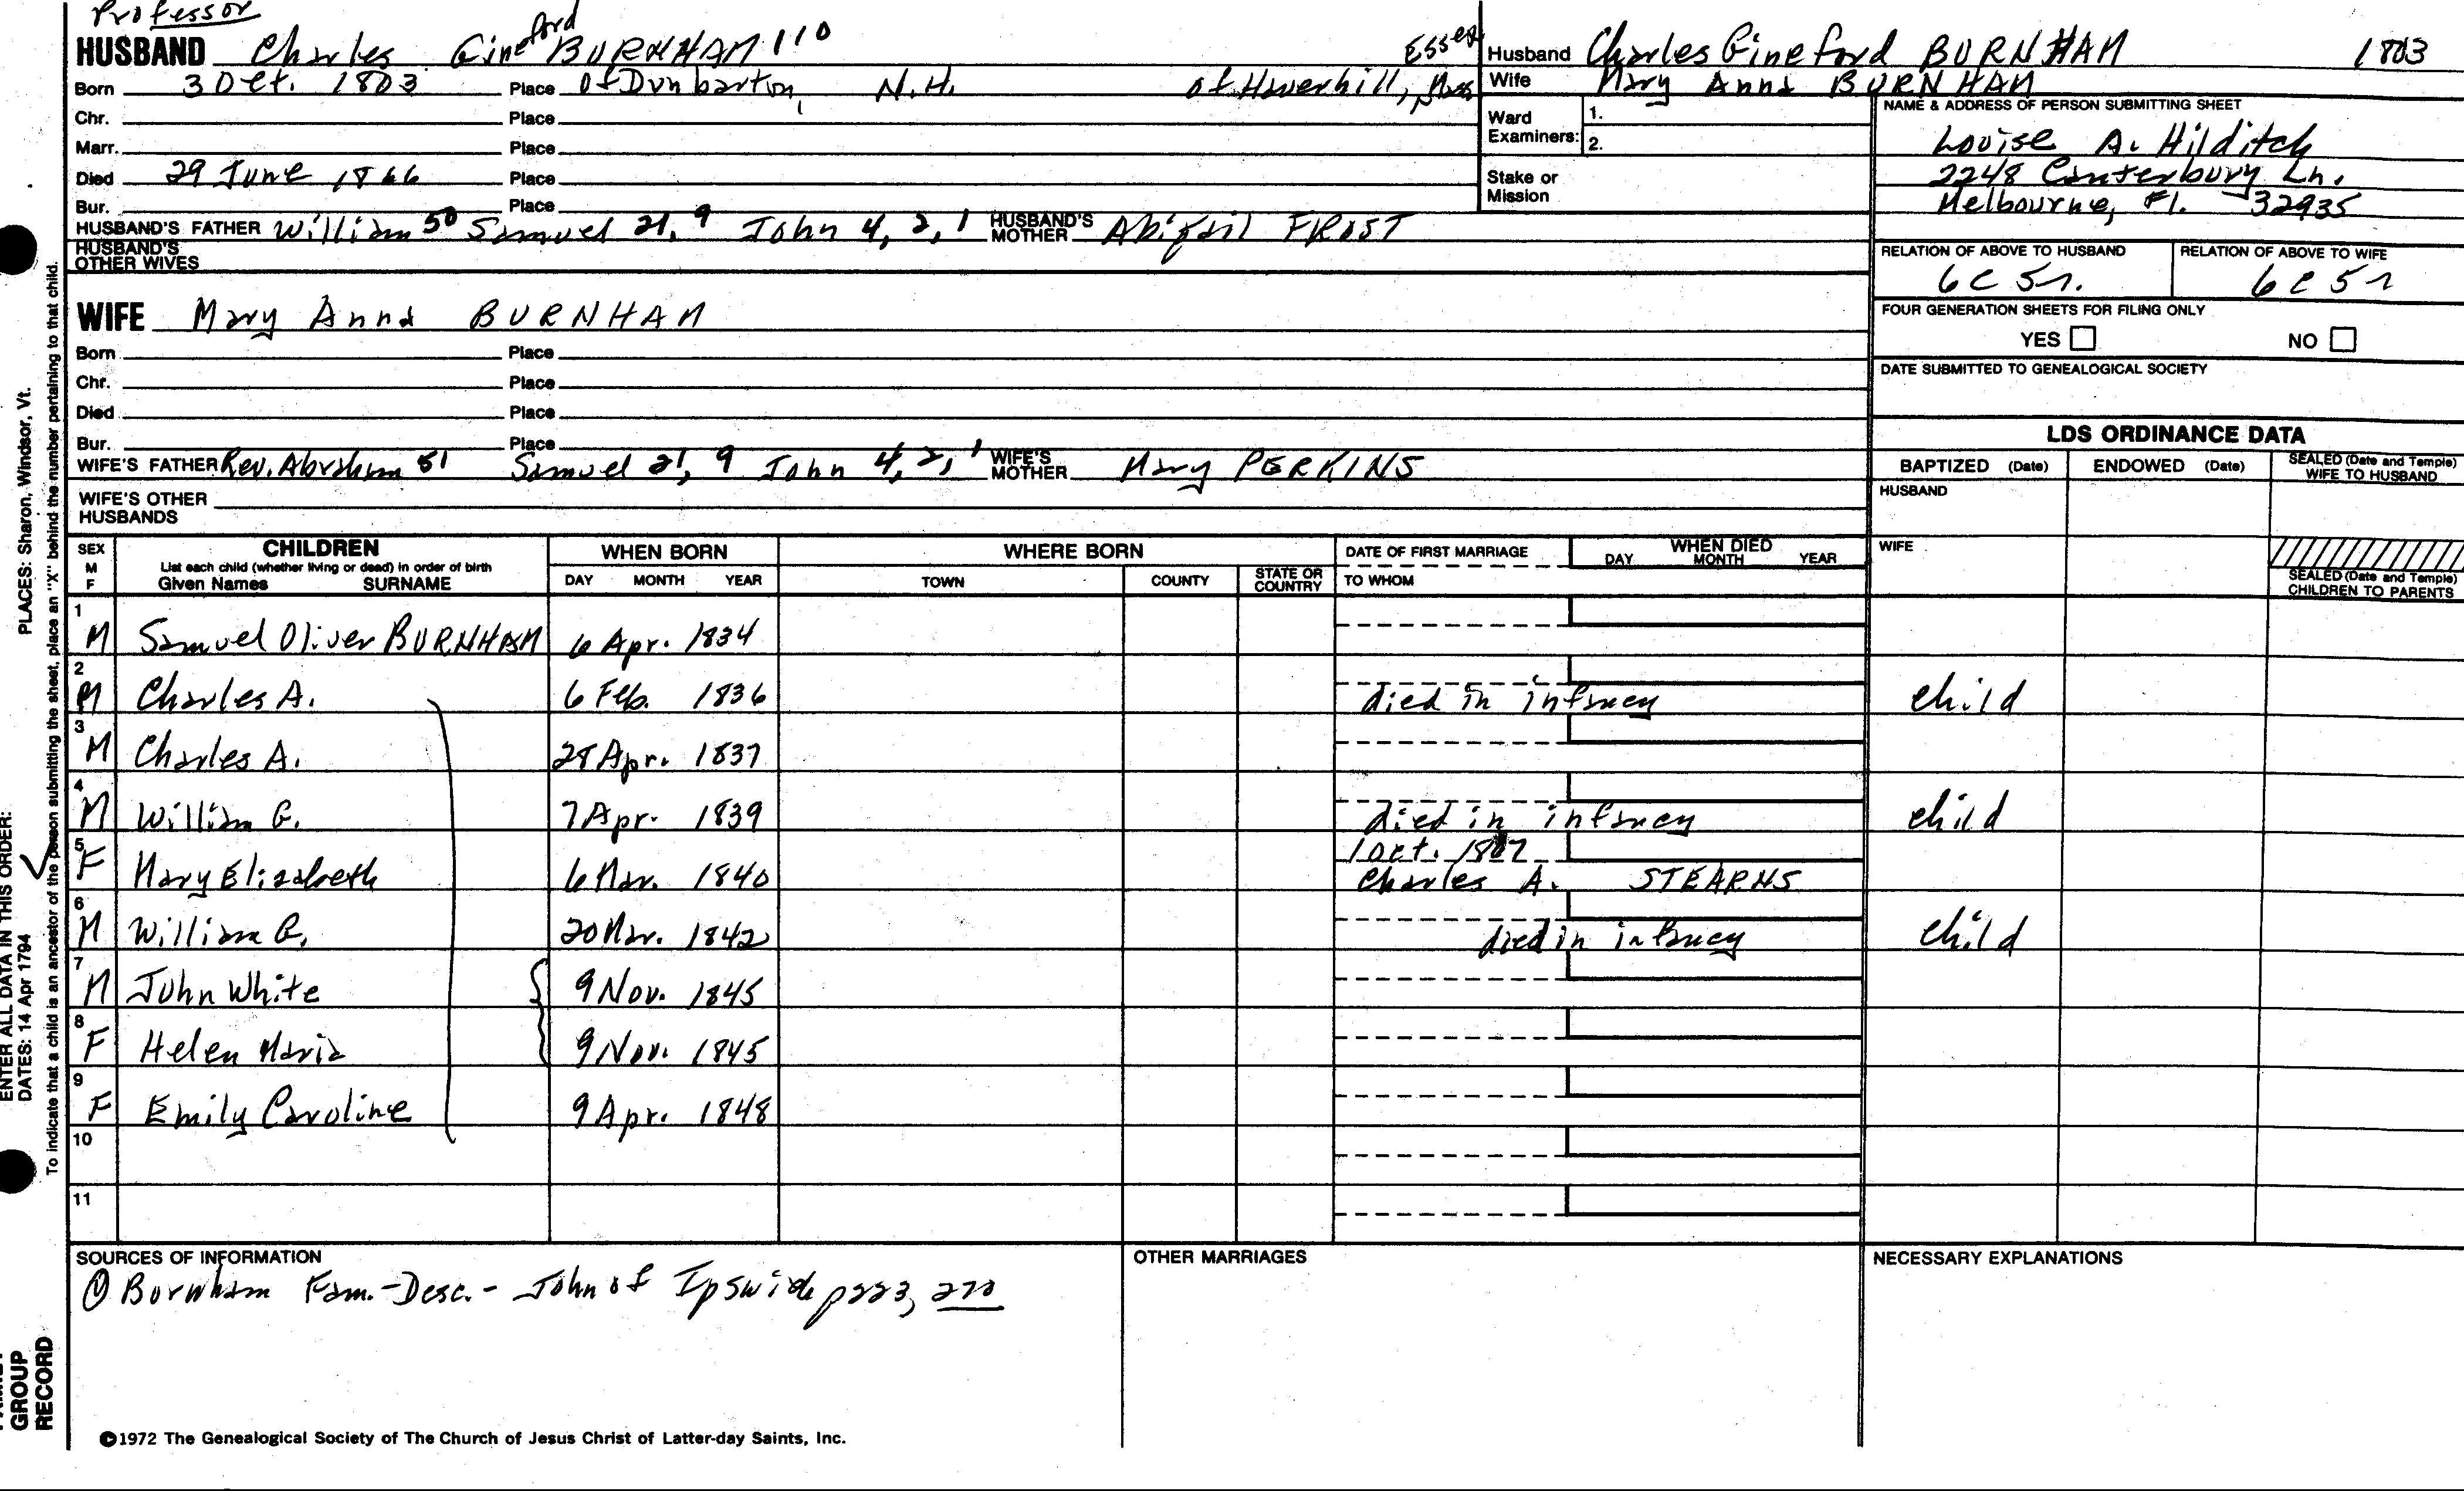 Professor
HUSBAND Charles Gineford BURNHAM 110
Born 3 Oct. 1803 Place of Dunbarton, N.H. of Haverhill, Essex Mass
Chr. Place
Marr. Place
Died 29 June 1866 Place
Bur. Place
HUSBAND'S FATHER William 50 Samuel 21, 9 John 4, 2, 1 HUSBAND'S MOTHER Abigail FROST
HUSBAND'S OTHER WIVES
WIFE Mary Anna BURNHAM
Born Place
Chr. Place
Died Place
Bur. Place
WIFE'S FATHER Rev. Abraham 51 Samuel 21, 9 John 4, 2, 1 WIFE'S MOTHER Mary PERKINS
WIFE'S OTHER HUSBANDS
Husband Charles Gineford BURNHAM 1803
Wife Mary Anna BURNHAM
Ward Examiners: 1.
2.
Stake or Mission
NAME & ADDRESS OF PERSON SUBMITTING SHEET
Louise A. Hilditch
2248 Canterbury Ln.
Melbourne, Fl. 32935
RELATION OF ABOVE TO HUSBAND RELATION OF ABOVE TO WIFE
6C 5r. 6C 5r
FOUR GENERATION SHEETS FOR FILING ONLY
YES NO
DATE SUBMITTED TO GENEALOGICAL SOCIETY
LDS ORDINANCE DATA
BAPTIZED (Date) ENDOWED (Date) SEALED (Date and Temple) WIFE TO HUSBAND
HUSBAND
WIFE
SEALED (Date and Temple) CHILDREN TO PARENTS
SEX M F CHILDREN WHEN BORN WHERE BORN DATE OF FIRST MARRIAGE WHEN DIED
List each child (whether living or dead) in order of birth
Given Names SURNAME DAY MONTH YEAR TOWN COUNTY STATE OR COUNTRY TO WHOM DAY MONTH YEAR
1 M Samuel Oliver BURNHAM 6 Apr. 1834
2 M Charles A. 6 Feb. 1836 died in infancy child
3 M Charles A. 28 Apr. 1837
4 M William G. 7 Apr. 1839 died in infancy child
5 F Mary Elizabeth 6 Mar. 1840 1 Oct. Charles A. STEARNS
6 M William G. 20 Mar. 1842 died in infancy child
7 M John White 9 Nov. 1845
8 F Helen Maria 9 Nov. 1845
9 F Emily Caroline 9 Apr. 1848
10
11
SOURCES OF INFORMATION
① Burnham Fam.-Desc.- John of Ipswich p223, 270
OTHER MARRIAGES
NECESSARY EXPLANATIONS
©1972 The Genealogical Society of The Church of Jesus Christ of Latter-day Saints, Inc.
ENTER ALL DATA IN THIS ORDER:
DATES: 14 Apr 1794
PLACES: Sharon, Windsor, Vt.
To indicate that a child is an ancestor of the person submitting the sheet, place an "X" behind the number pertaining to that child.
GROUP
RECORD